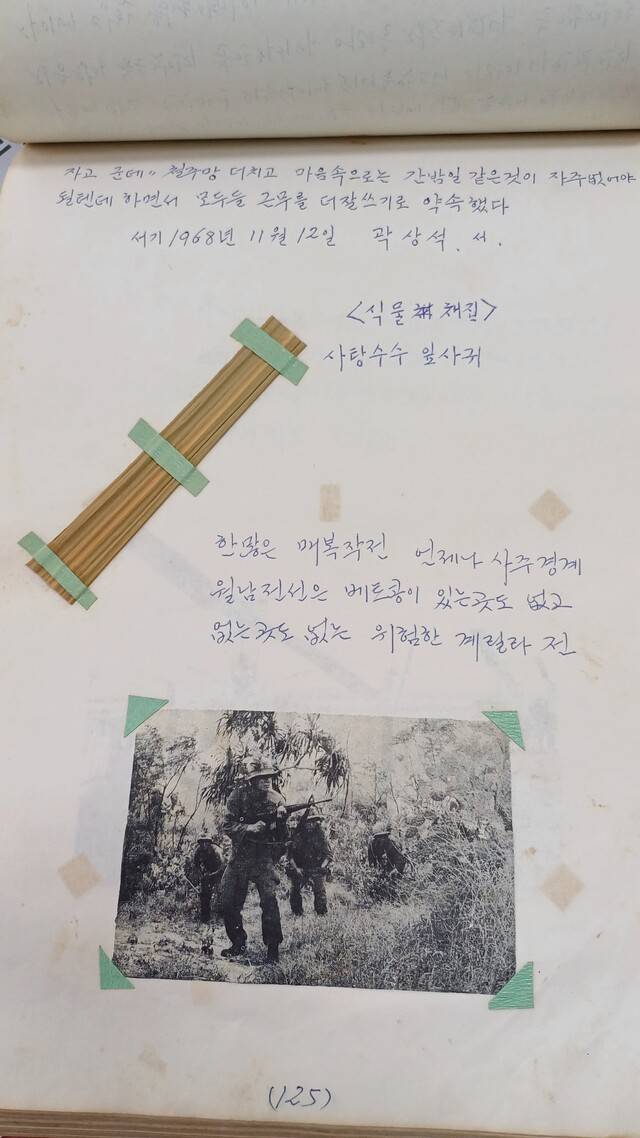 자고 군데〃 철주망 더치고 마음속으로는 간밤일 같은것이 자주없어야
될텐데 하면서 모두들 근무를 더잘쓰기로 약속했다
서기 1968년 11월 12일 곽상석. 서.
<식물 채집>
사탕수수 잎사귀
한많은 매복작전 언제나 사주경계
월남전선은 베트콩이 있는곳도 없고
없는곳도 없는 위험한 계릴라 전
(125)